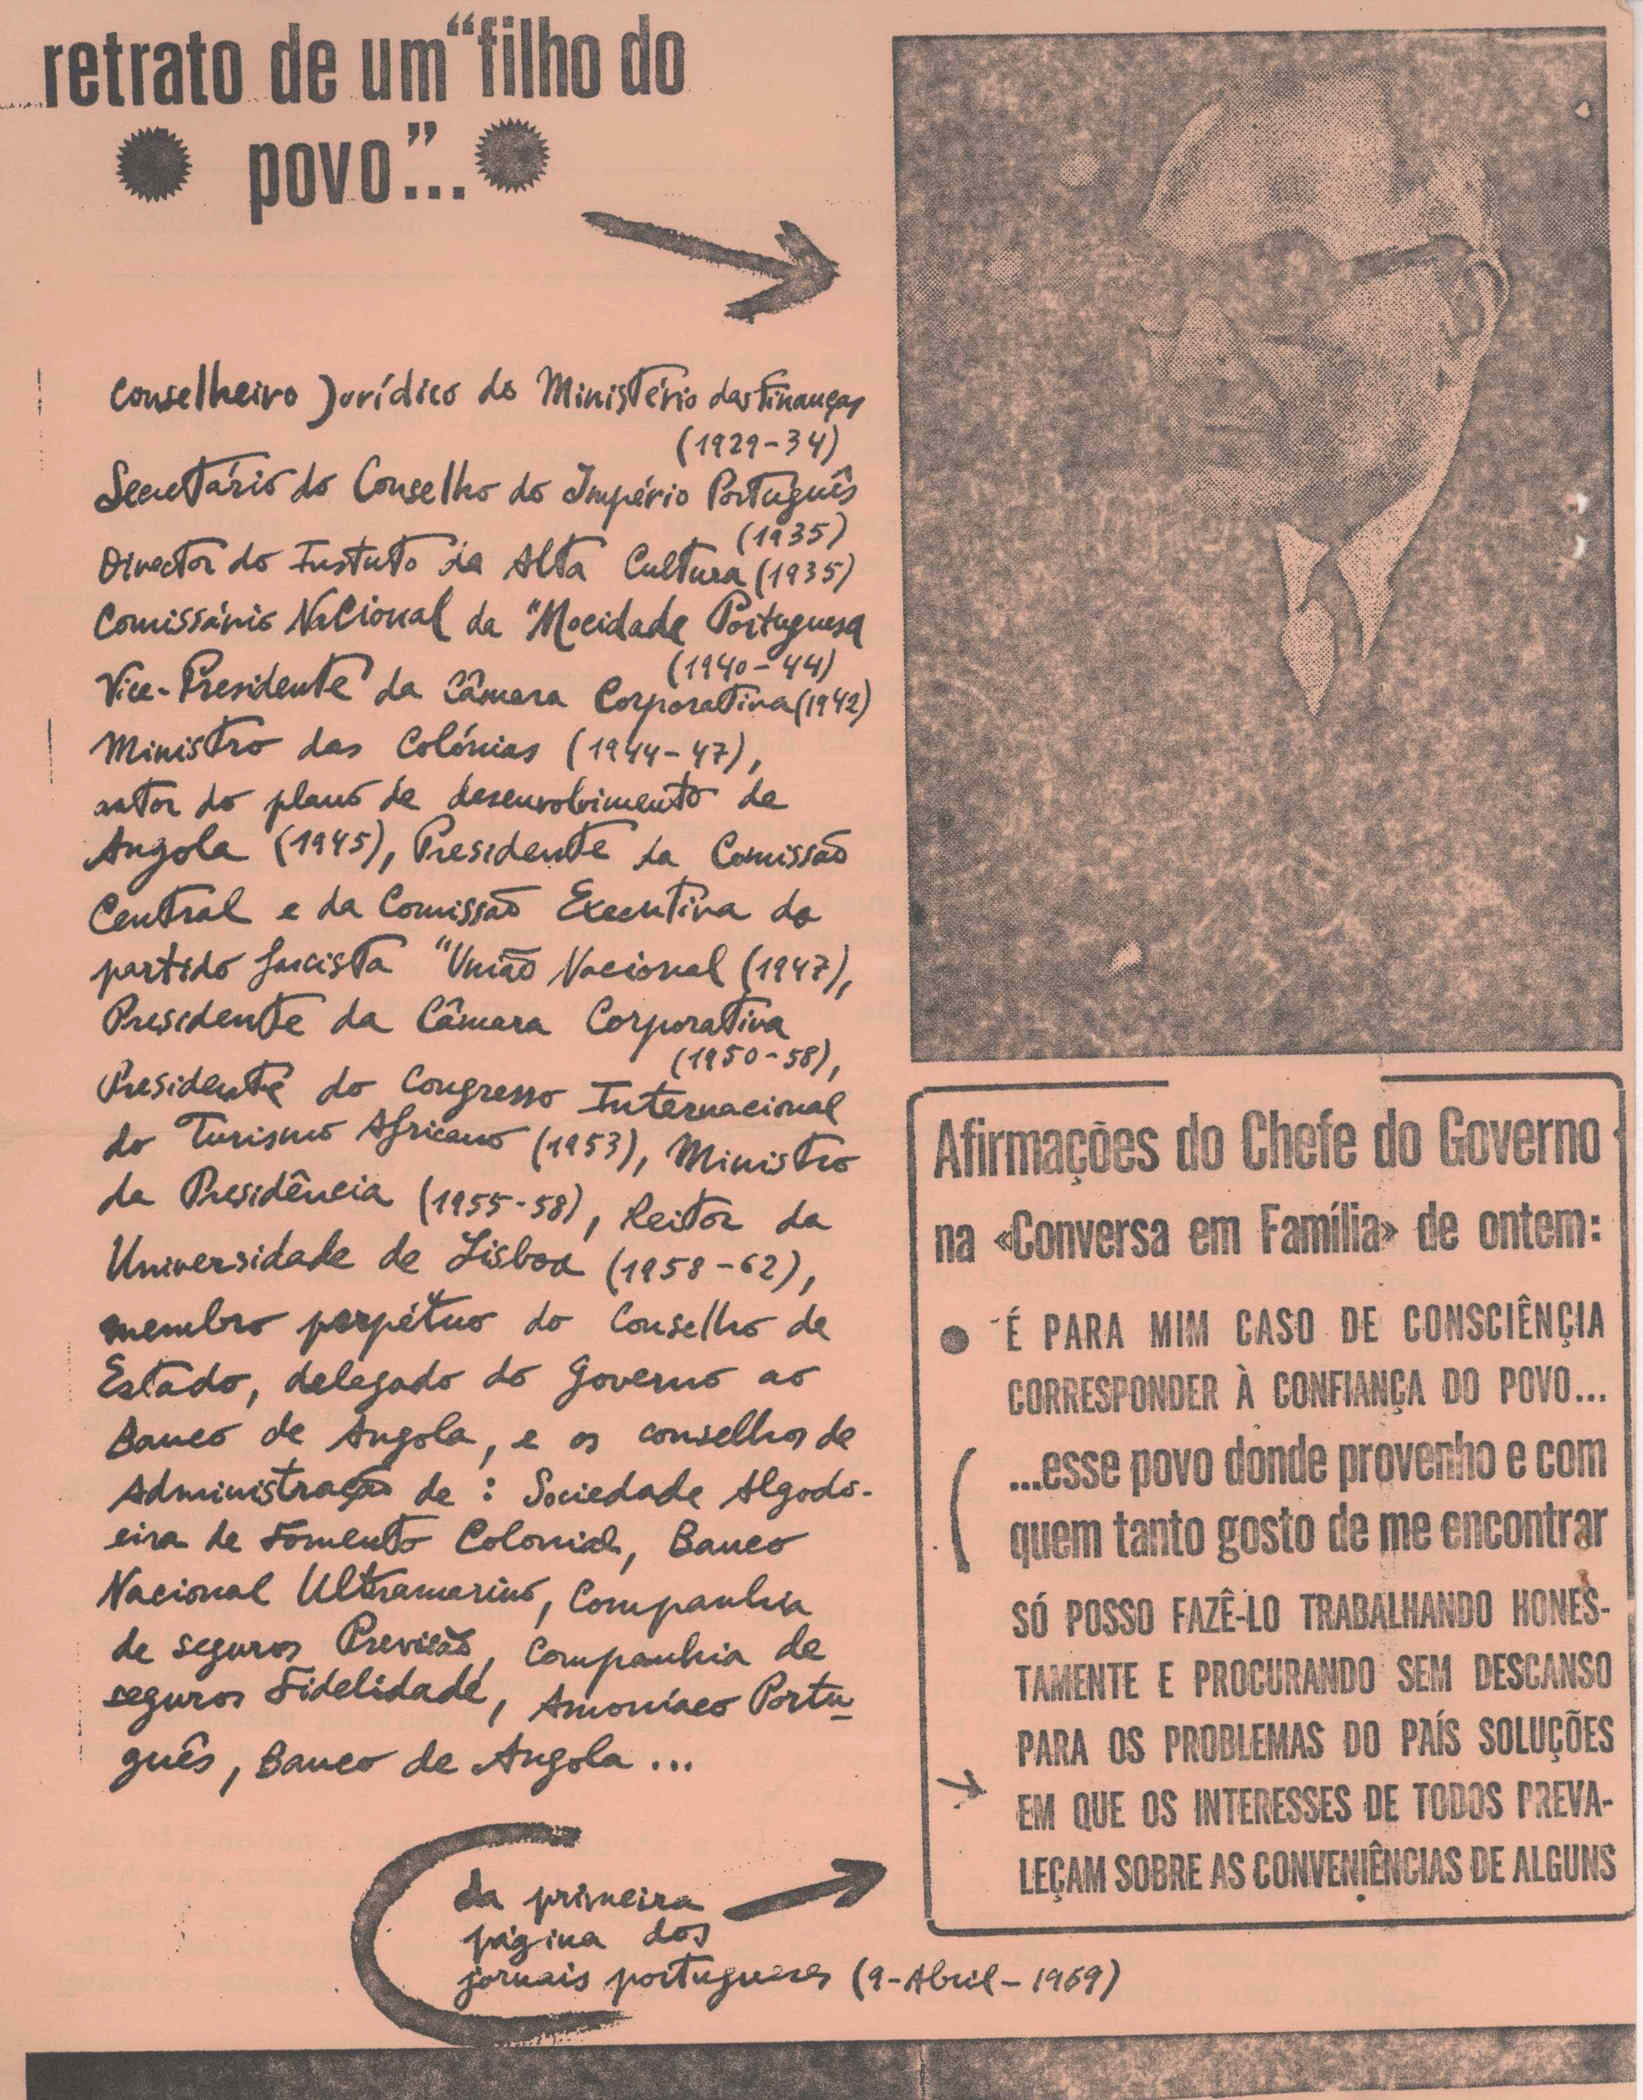 retrato de um "filho do
povo"...
Conselheiro Jurídico do Ministério das Finanças
(1929-34)
Secretário do Conselho do Império Português
(1935)
Director do Instuto da Alta Cultura (1935)
Comissário Nacional da "Mocidade Portuguesa
(1940-44)
Vice-Presidente da Câmara Corporativa (1942)
Ministro das Colónias (1944-47),
autor do plano de desenvolvimento de
Angola (1945), Presidente da Comissão
Central e da Comissão Executiva do
partido fascista "União Nacional (1947),
Presidente da Câmara Corporativa
(1950-58),
Presidente do Congresso Internacional
do Turismo Africano (1953), Ministro
da Presidência (1955-58), Reitor da
Universidade de Lisboa (1958-62),
membro perpétuo do Conselho de
Estado, delegado do Governo ao
Banco de Angola, e os conselhos de
Administração de: Sociedade Algodo-
eira de Fomento Colonial, Banco
Nacional Ultramarino, Companhia
de seguros Previsão, Companhia de
seguros Fidelidade, Amoníaco Portu-
guês, Banco de Angola...
da primeira
página dos
jornais portugueses (9-Abril-1969)
Afirmações do Chefe do Governo
na «Conversa em Família» de ontem:
● É PARA MIM CASO DE CONSCIÊNÇIA
CORRESPONDER À CONFIANÇA DO POVO...
...esse povo donde provenho e com
quem tanto gosto de me encontrar
SÓ POSSO FAZÊ-LO TRABALHANDO HONES-
TAMENTE E PROCURANDO SEM DESCANSO
PARA OS PROBLEMAS DO PAÍS SOLUÇÕES
EM QUE OS INTERESSES DE TODOS PREVA-
LEÇAM SOBRE AS CONVENIÊNCIAS DE ALGUNS